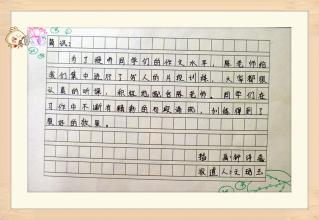 简讯：
为了提升同学们的作文水平，陈老师给
我们集中进行了写人的片段训练。大家都很
认真的听课，积极地配合陈老师。同学们在
习作中不断有精彩的段段涌现，训练得到了
很好的效果。
插画：钟诗
报道人：文